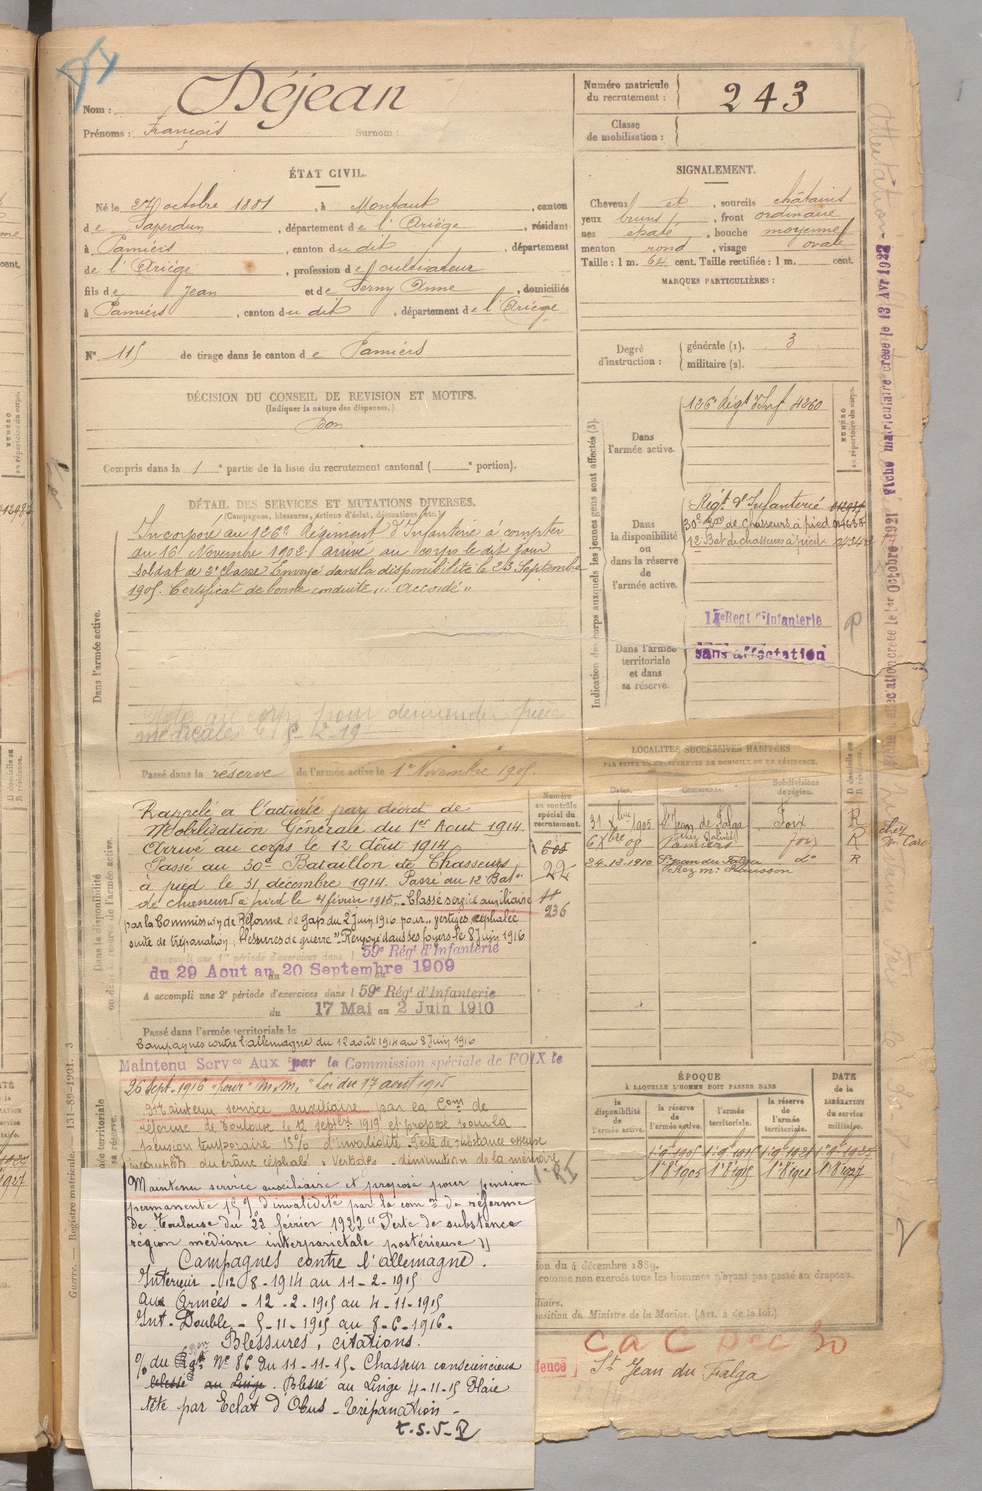 Nom : Déjean
Prénoms : François Surnom :
Numéro matricule du recrutement : 243
Classe de mobilisation :
ÉTAT CIVIL.
Né le 27 octobre 1881, à Montaut, canton
de Saverdun, département de l'Ariége, résidant
à Pamiers, canton du dit, département
de l'Ariége, profession de cultivateur
fils de Jean et de Serny Anne, domiciliés
à Pamiers, canton du dit, département de l'Ariége
N° 115 de tirage dans le canton de Pamiers
SIGNALEMENT.
Cheveux et, sourcils châtains
yeux bruns, front ordinaire
nez épaté, bouche moyenne
menton rond, visage ovale
Taille : 1 m. 64 cent. Taille rectifiée : 1 m. cent.
MARQUES PARTICULIÈRES :
Degré d'instruction : générale (1). 3
militaire (2).
DÉCISION DU CONSEIL DE REVISION ET MOTIFS.
(Indiquer la nature des dispenses.)
Bon
Compris dans la 1e partie de la liste du recrutement cantonal ( e portion).
DÉTAIL DES SERVICES ET MUTATIONS DIVERSES.
(Campagnes, blessures, actions d'éclat, décorations, etc.)
Dans l'armée active.
Incorporé au 126e Régiment d'Infanterie à compter
du 16 Novembre 1902. arrivé au corps le dit jour
soldat de 2e classe Envoyé dans la disponibilité le 23 Septembre
1905. Certificat de bonne conduite "accordé"
au corps pour demander pièce
médicale le 5-12-19
Passé dans la réserve de l'armée active le 1er Novembre 1905.
Indication des corps auxquels les jeunes gens sont affectés (3).
NUMÉRO au répertoire du corps.
Dans l'armée active.
126e Régt d'Inf 4260
Dans la disponibilité ou dans la réserve de l'armée active.
Régt d'Infanterie
30e Bon de Chasseurs à pied
12 Bat de chasseurs à pied
Dans l'armée territoriale et dans sa réserve.
Regt d'Infanterie
sans affectation
Dans la disponibilité ou dans la réserve de l'armée active.
Rappelé à l'activité par décret de
Mobilisation Générale du 1er Aout 1914.
Arrivé au corps le 12 Aout 1914.
Passé au 30e Bataillon de Chasseurs
à pied le 31 décembre 1914. Passé au 12 Bat on
de chasseurs à pied le 4 février 1915. Classé service auxiliaire
par la Commission de Réforme de Gap du 2 Juin 1916 pour "vertiges, céphalée
suite de trépanation, blessures de guerre". Renvoyé dans ses foyers le 8 Juin 1916
A accompli une 1re période d'exercices dans l 59e Rég t d'Infanterie
du 29 Aout au 20 Septembre 1909
A accompli une 2e période d'exercices dans l 59e Rég t d'Infanterie
du 17 Mai au 2 Juin 1910
Passé dans l'armée territoriale le
Campagnes contre l'allemagne du 12 août 1914 au 8 juin 1916
Numéro au contrôle spécial du recrutement.
605
22
236
LOCALITÉS SUCCESSIVES HABITÉES
PAR SUITE DE CHANGEMENTS DE DOMICILE OU DE RÉSIDENCE.
Dates. Communes. Subdivisions de région. D domicile ou R résidence.
31 Xbre 1905 St Jean du Falga Foix R
6 Xbre 08 Pamiers Foix R chez
24-12-1910 St Jean du Falga do R
Maintenu Serv ce Aux par la Commission spéciale de FOIX le
26 Sept. 1916 pour M.M. Loi du 17 août 1915
Maintenu service auxiliaire par la Com on de
réforme de Toulouse le 12 sept bre 1919 et proposé pour la
pension temporaire 15% d'invalidité Perte de substance osseuse
du crâne céphalé, vertiges, diminution de la mémoire
ÉPOQUE
À LAQUELLE L'HOMME DOIT PASSER DANS
la disponibilité de l'armée active. la réserve de l'armée active. l'armée territoriale. la réserve de l'armée territoriale.
DATE de la LIBÉRATION du service militaire.
1er 8bre 1905 1er 8bre 1915 1er 8bre 1921 1er 8bre 1927
Maintenu service auxiliaire et proposé pour pension
permanente 15% d'invalidité par la com on de réforme
de Toulouse du 22 février 1922 "Perte de substance
région médiane interpariétale postérieure"
Campagnes contre l'allemagne.
Intérieur - 12-8-1914 au 11-2-1915
aux Armées - 12-2-1915 au 4-11-1915
Int. Double - 5-11-1915 au 8-6-1916-
Blessures, citations.
% du Bon N° 86 du 11-11-15 - Chasseur consciencieux
blessé au Linge. Blessé au Linge 4-11-15 Plaie
tête par Eclat d'Obus - trépanation -
t.s.v.p
ion du 4 décembre 1889.
comme non exercés tous les hommes n'ayant pas passé au drapeau.
position du Ministre de la Marine. (Art. 4 de la loi.)
C a C Dec 30
dence St Jean du Falga
Guerre. — Registre matricule. 131-89-1901. 3
Fiche matriculaire créée le 13 Avr 1922
créée le 1er Octobre 1921